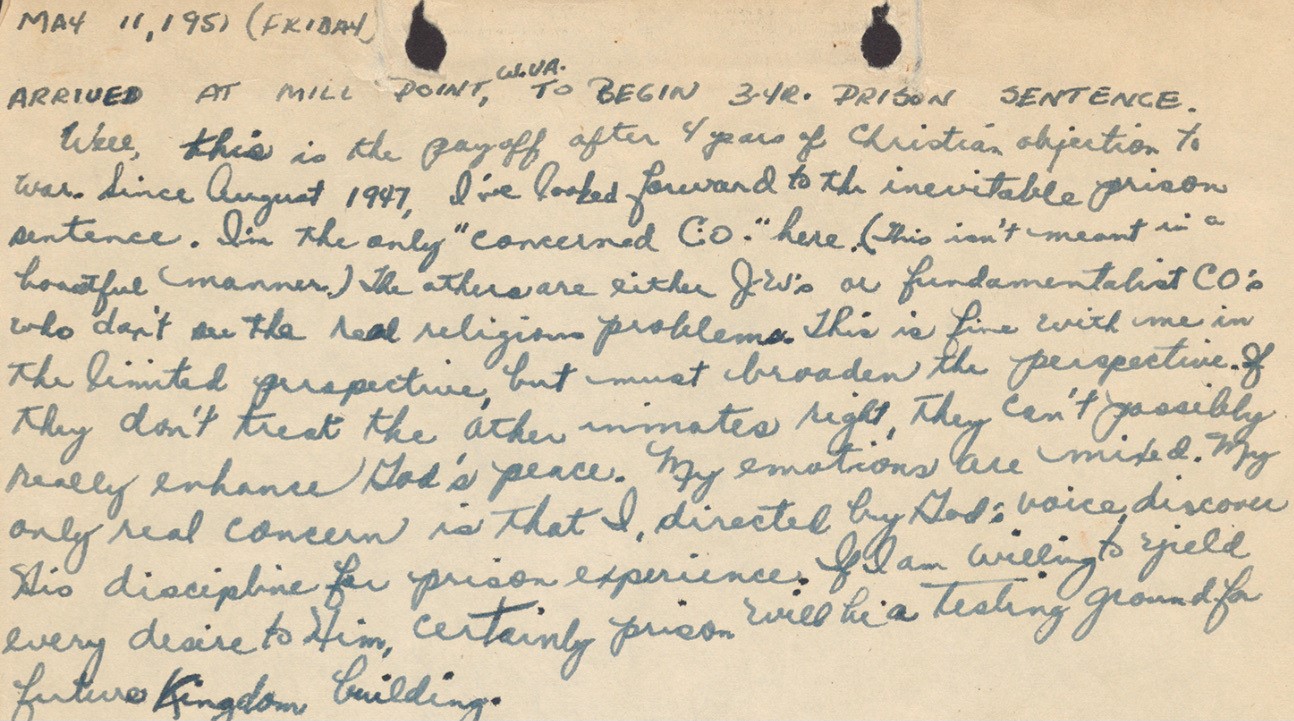 MAY 11, 1951 (FRIDAY)
W.VA.
ARRIVED AT MILL POINT, TO BEGIN 3-YR. PRISON SENTENCE.
Well, this is the payoff after 4 years of Christian objection to
war. Since August 1947, I've looked forward to the inevitable prison
sentence. I'm the only "concerned C.O." here. (This isn't meant in a
boastful manner.) The others are either J.W.'s or fundamentalist CO's
who don't see the real religious problems. This is fine with me in
the limited perspective, but must broaden the perspective. If
they don't treat the other inmates right, they can't possibly
really enhance God's peace. My emotions are mixed. My
only real concern is that I, directed by God's voice, discover
His discipline for prison experience. If I am willing to yield
every desire to Him, certainly prison will be a testing ground for
future Kingdom building.